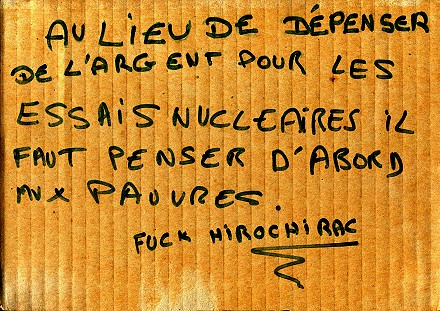 AU LIEU DE DÉPENSER
DE L'ARGENT POUR LES
ESSAIS NUCLEAIRES iL
FAUT PENSER D'ABORD
AUX PAUVRES.
FUCK HiROCHiRAC